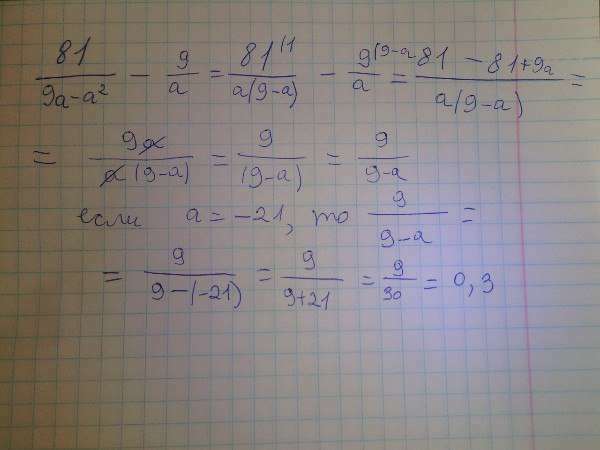 81/(9a-a²) - 9/a = 81^(1/(a(9-a)) - 9^(9-a/a = (81 - 81+9a)/(a(9-a)) =
= 9a/(a(9-a)) = 9/(9-a) = 9/(9-a)
если a = -21, то 9/(9-a) =
= 9/(9-(-21)) = 9/(9+21) = 9/30 = 0,3